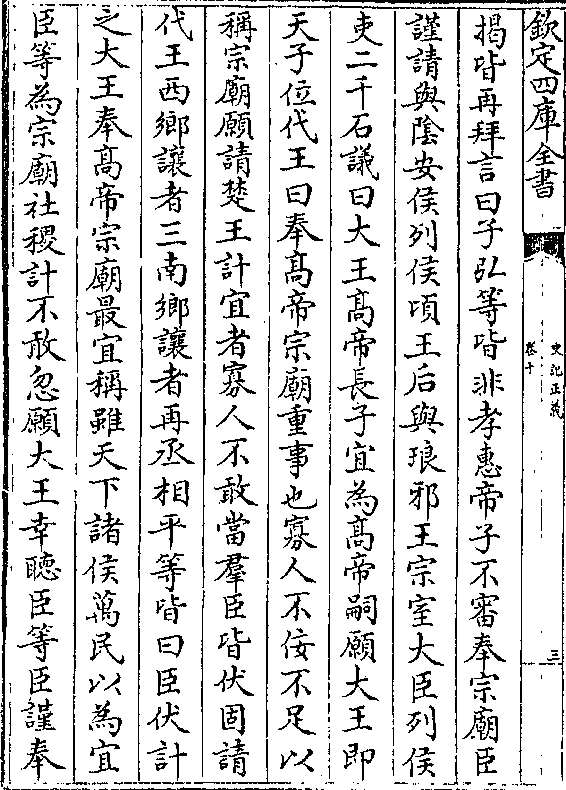 欽定四庫全書
史記正義
卷十
三
揭皆再拜言曰子弘等皆非孝惠帝子不審奉宗廟臣
謹請與陰安侯列侯頃王后與琅邪王宗室大臣列侯
吏二千石議曰大王髙帝長子宜為髙帝嗣願大王即
天子位代王曰奉髙帝宗廟重事也寡人不佞不足以
稱宗廟願請楚王計宜者寡人不敢當羣臣皆伏固請
代王西鄉讓者三南鄉讓者再丞相平等皆曰臣伏計
之大王奉髙帝宗廟最宜稱雖天下諸侯萬民以為宜
臣等為宗廟社稷計不敢忽願大王幸聽臣等臣謹奉